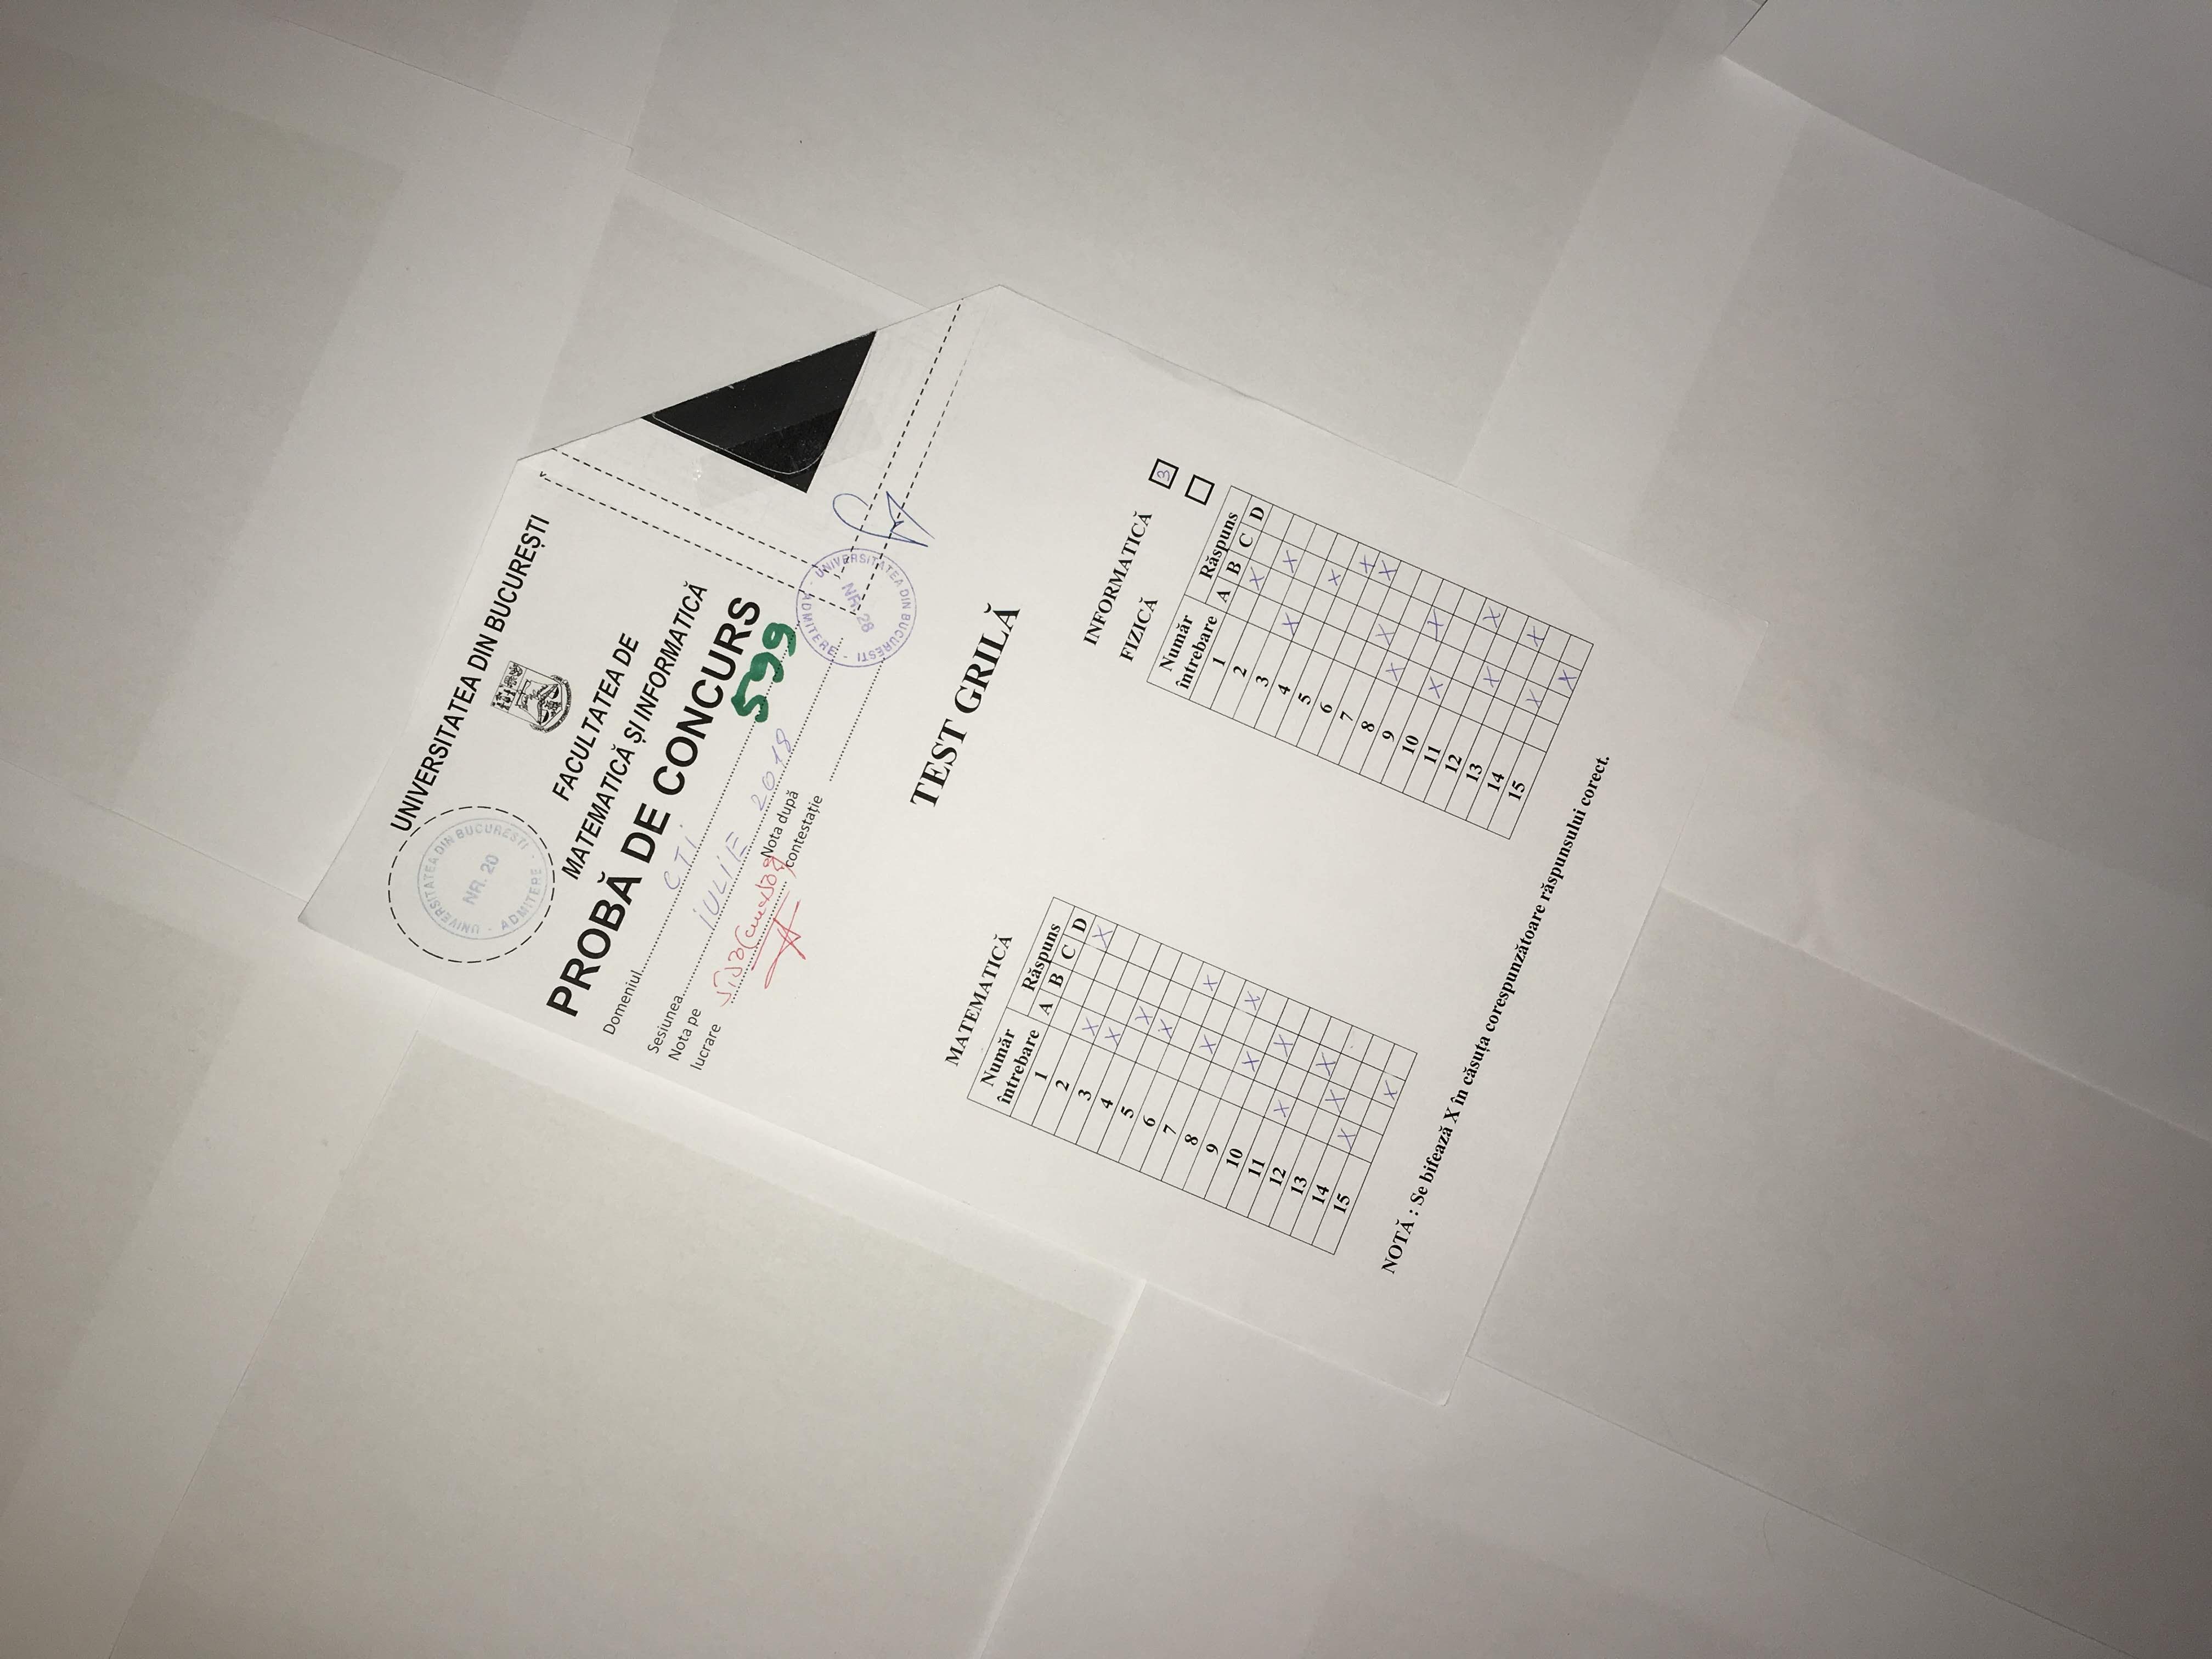 UNIVERSITATEA DIN BUCUREȘTI
UNIVERSITATEA DIN BUCUREȘTI · ADMITERE ·
NR. 20
FACULTATEA DE
MATEMATICĂ ȘI INFORMATICĂ
PROBĂ DE CONCURS
Domeniul CTi
599
Sesiunea iULiE 2018
Nota pe
lucrare
Nota după
contestație
UNIVERSITATEA DIN BUCURESTI · ADMITERE ·
NR. 28
TEST GRILĂ
MATEMATICĂ
Număr
întrebare Răspuns
A B C D
1 X
2 X
3 X
4 X
5 X
6 X
7 X
8 X
9 X
10 X
11 X
12 X
13 X
14 X
15 X
INFORMATICĂ 3
FIZICĂ
Număr
întrebare Răspuns
A B C D
1 X
2 X
3 X
4 X
5 X
6 X
7 X
8 X
9 X
10 X
11 X
12 X
13 X
14 X
15 X
NOTĂ : Se bifează X în căsuța corespunzătoare răspunsului corect.